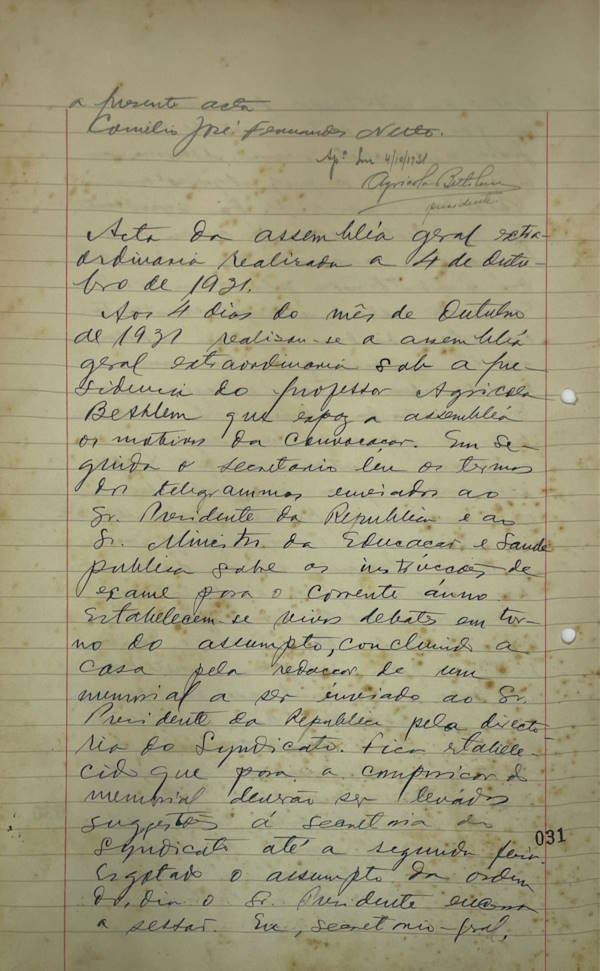 a presente acta
Comilio José Fernandes Netto.
Apº Em 4/10/1931
Agricola Bethlem
presidente
Acta da assembléa geral extra-
ordinaria realizada a 4 de Outu-
bro de 1931.
Aos 4 dias do mês de Outubro
de 1931 realisou-se a assembléa
geral extraordinaria sob a pre-
sidencia do professor Agricola
Bethlem que expoz a assembléa
os motivos da convocação. Em se-
guida o secretario leu os termos
dos telegrammas enviados ao
Sr. Presidente da Republica e ao
Sr. Ministro da Educacao e Saude
publica sobre as instrucções de
exame para o corrente anno.
Estabelecem-se vivos debates em tor-
no do assumpto, concluindo a
casa pela redaccao de um
memorial a ser enviado ao Sr.
Presidente da Republica pela directo-
ria do Syndicato. Fica estabele-
cido que para a composicao do
memorial deverão ser levados
suggestões á secretaria do
Syndicato até a segunda feira.
Esgotado o assumpto da ordem
do dia o Sr. Presidente encerra
a sessao. Eu, secretario-geral,
031